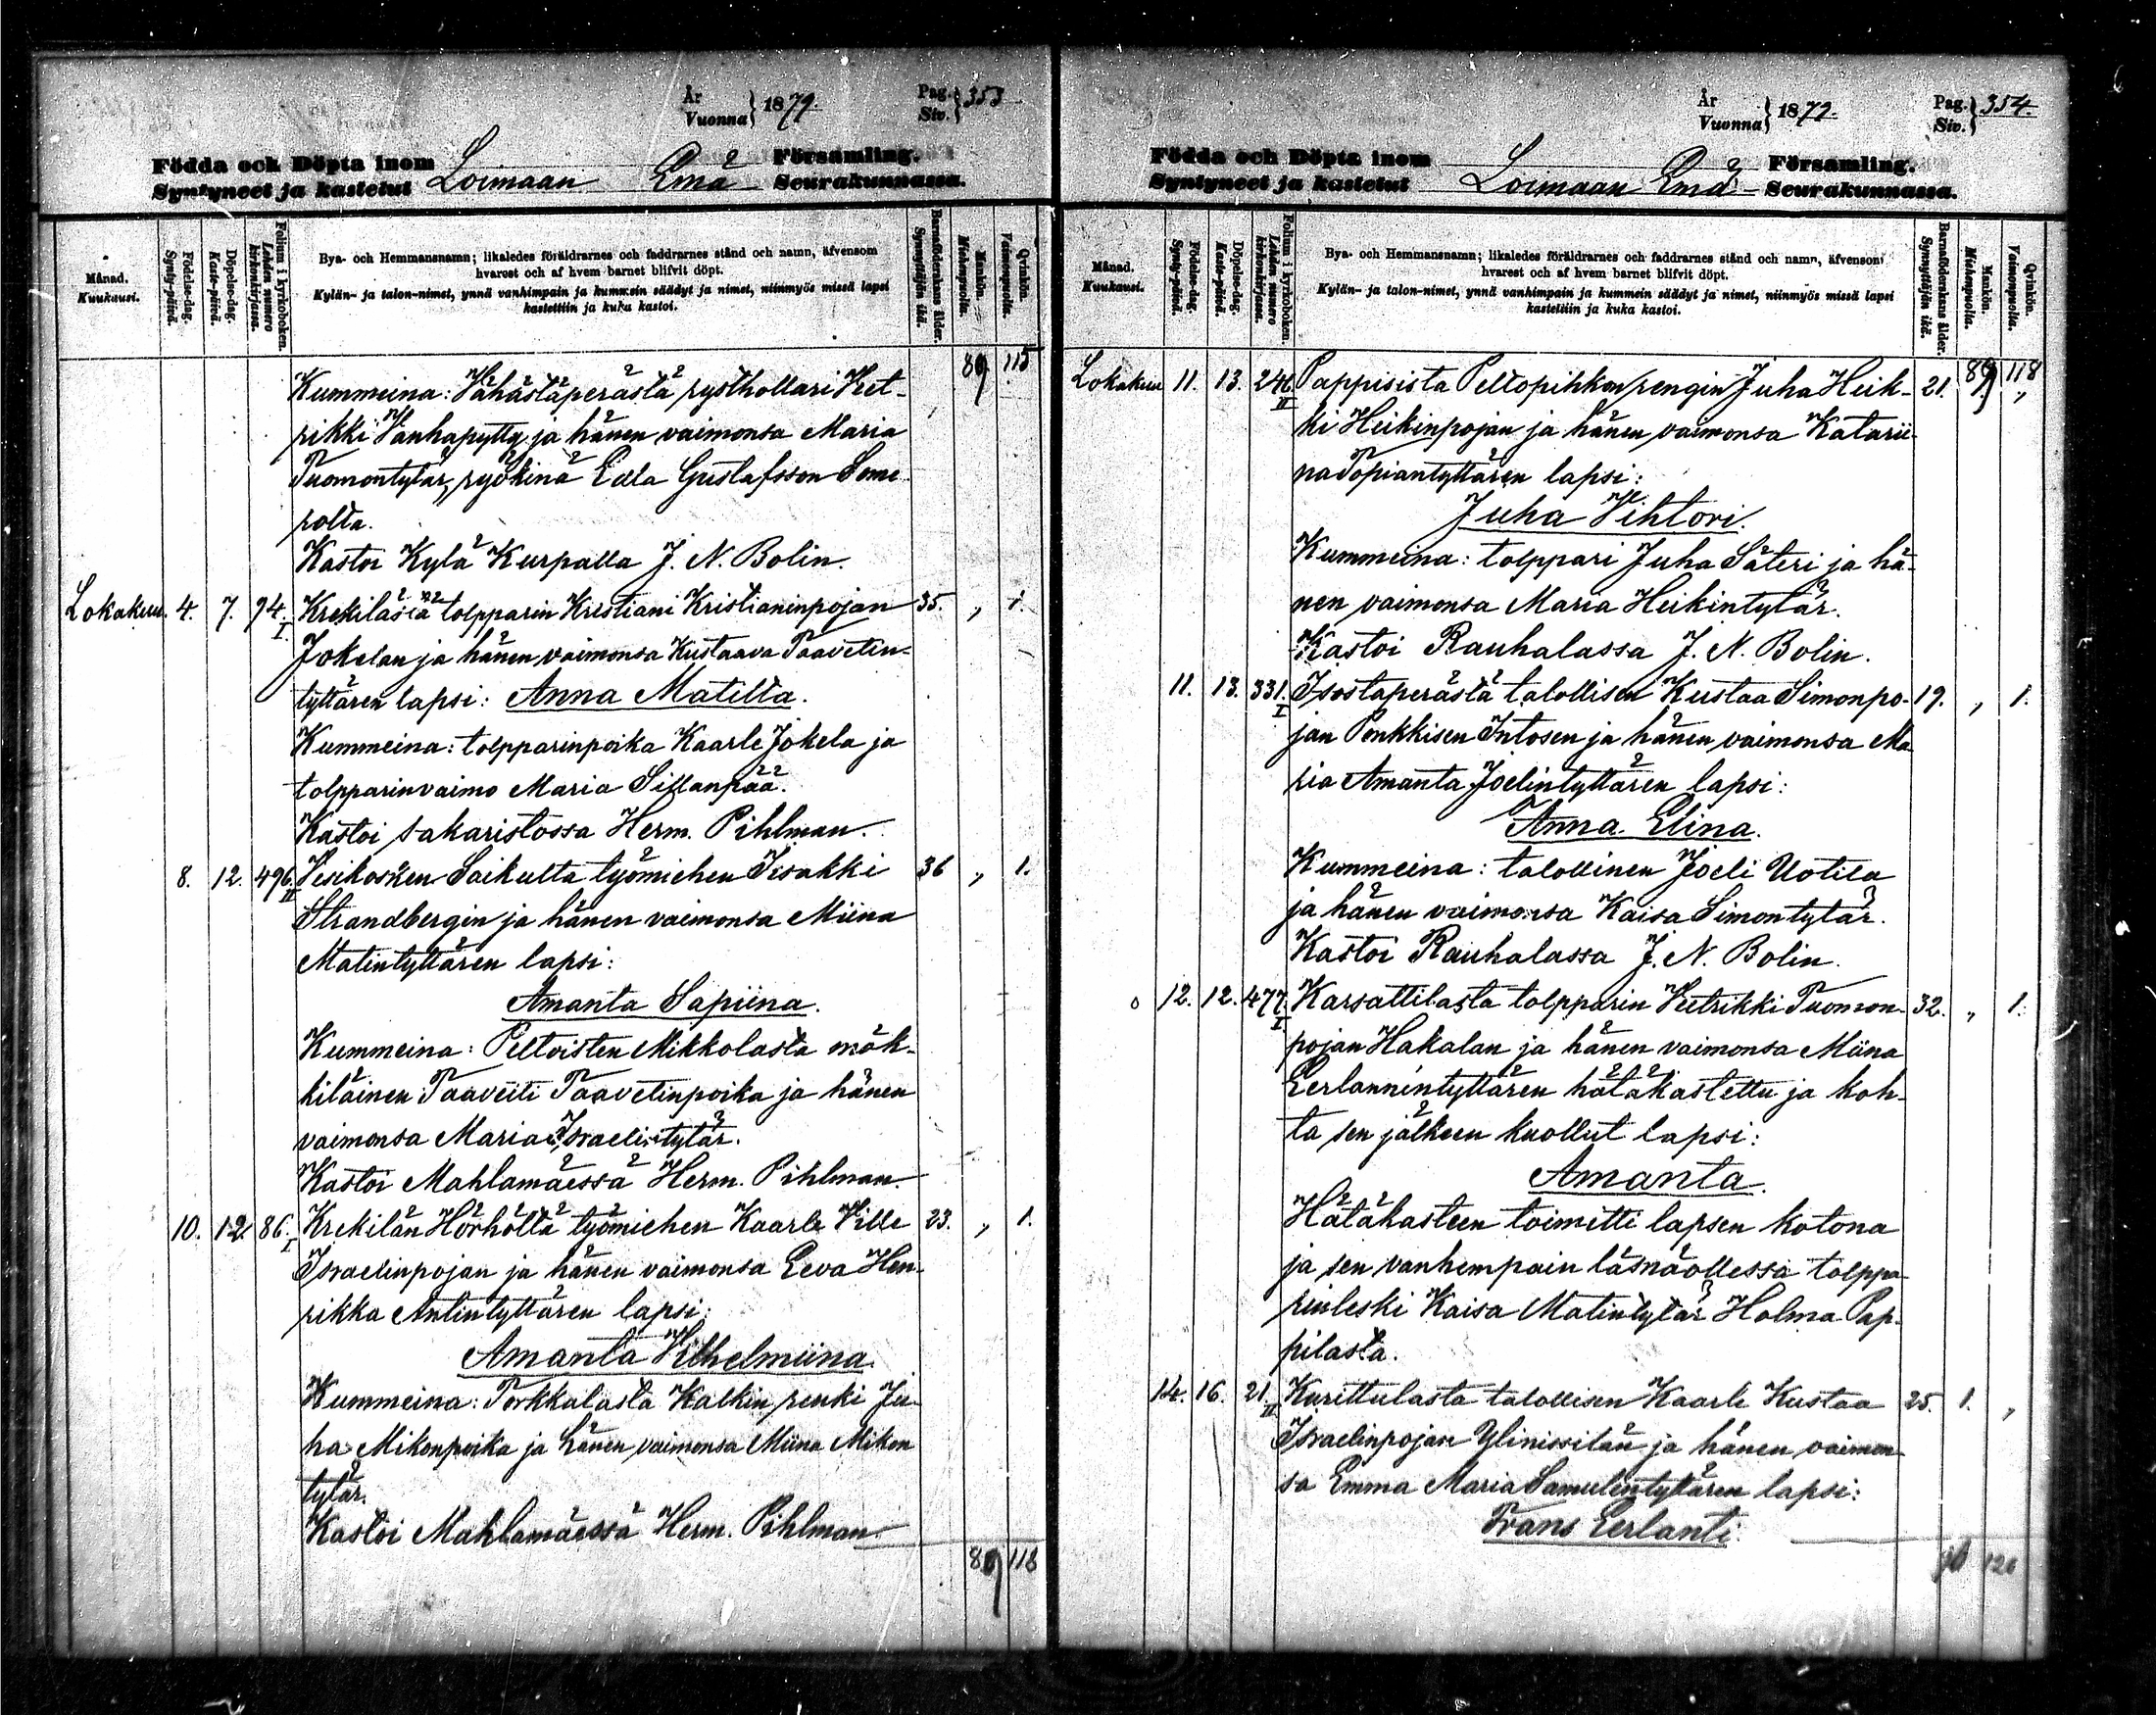 År
Vuonna } 1879.
Pag.
Siv. } 353
Födda och Döpta inom Loimaan Emä Församling.
Syntyneet ja kastetut Seurakunnassa.
Månad.
Kuukausi.
Födelse-dag.
Synty-päivä.
Döpelse-dag.
Kaste-päivä.
Folium i kyrkoboken.
Lehden numero kirkonkirjassa.
Bya- och Hemmansnamn; likaledes föräldrarnes och faddrarnes stånd och namn, äfvensom
hvarest och af hvem barnet blifvit döpt.
Kylän- ja talon-nimet, ynnä vanhimpain ja kummein säädyt ja nimet, niinmyös missä lapsi
kastettiin ja kuka kastoi.
Barnaföderskans ålder.
Synnyttäjän ikä.
Mankön.
Miehenpuolia.
Qvinkön.
Vaimonpuolia.
89 115
Kummeina: Vähästäperästä rysthollari Vet-
rikki Vanhapytty ja hänen vaimonsa Maria
Tuomontytär, ryökinä Edla Gustafsson Some-
rolta.
Kastoi Kylä Kurpalla J. N. Bolin.
Lokakuu. 4. 7. 94. I. Krekilästä tolpparin Kristiani Kristianinpojan 35. „ 1.
Jokelan ja hänen vaimonsa Kustaava Taavetin-
tyttären lapsi: Anna Matilta.
Kummeina: tolpparinpoika Kaarle Jokela ja
tolpparinvaimo Maria Sillanpää.
Kastoi sakaristossa Herm. Pihlman.
8. 12. 496. II Vesikosken Saikulta työmiehen Iisakki 36 „ 1.
Strandbergin ja hänen vaimonsa Miina
Matintyttären lapsi:
Amanta Sapiina.
Kummeina: Peltoisten Mikkolasta mök-
kiläinen Taaveiti Taavetinpoika ja hänen
vaimonsa Maria Israelintytär.
Kastoi Mahlamäessä Herm. Pihlman.
10. 12 86. I Krekilän Hörhöltä työmiehen Kaarle Ville 23. „ 1.
Israelinpojan ja hänen vaimonsa Eeva Hen-
rikka Antintyttären lapsi:
Amanta Vilhelmiina.
Kummeina: Torkkalasta Kalkin renki Ju-
ha Mikonpoika ja hänen vaimonsa Miina Mikon
tytär.
Kastoi Mahlamäessä Herm. Pihlman.
89 118
År
Vuonna } 1879.
Pag.
Siv. } 354.
Födda och Döpta inom Loimaan Emä Församling.
Syntyneet ja kastetut Seurakunnassa.
Månad.
Kuukausi.
Födelse-dag.
Synty-päivä.
Döpelse-dag.
Kaste-päivä.
Folium i kyrkoboken.
Lehden numero kirkonkirjassa.
Bya- och Hemmansnamn; likaledes föräldrarnes och faddrarnes stånd och namn, äfvensom
hvarest och af hvem barnet blifvit döpt.
Kylän- ja talon-nimet, ynnä vanhimpain ja kummein säädyt ja nimet, niinmyös missä lapsi
kastettiin ja kuka kastoi.
Barnaföderskans ålder.
Synnyttäjän ikä.
Mankön.
Miehenpuolia.
Qvinkön.
Vaimonpuolia.
89 118
Lokakuu 11. 13. 246. II Pappisista Peltopihkan rengin Juha Heik- 21. 1. „
ki Heikinpojan ja hänen vaimonsa Katarii-
na Topiantyttären lapsi:
Juha Vihtori.
Kummeina: tolppari Juha Säteri ja hä-
nen vaimonsa Maria Heikintytär.
Kastoi Rauhalassa J. N. Bolin.
11. 13. 331. I Isostaperästä talollisen Kustaa Simonpo- 19. „ 1.
jan Penkkisen Intosen ja hänen vaimonsa Ma
ria Amanta Joelintyttären lapsi:
Anna Elina.
Kummeina: talollinen Joeli Uotila
ja hänen vaimonsa Kaisa Simontytär.
Kastoi Rauhalassa J. N. Bolin.
o 12. 12. 477. I Karsattilasta tolpparin Vetrikki Tuomon- 32. „ 1.
pojan Hakalan ja hänen vaimonsa Miina
Eerlannintyttären hätäkastettu ja koh-
ta sen jälkeen kuollut lapsi:
Amanta.
Hätäkasteen toimitti lapsen kotona
ja sen vanhempain läsnäollessa tolppa-
rinleski Kaisa Matintytär Holma Pap-
pilasta.
14. 16. 21. II Kurittulasta talollisen Kaarle Kustaa 25. 1. „
Israelinpojan Ylinissilän ja hänen vaimon-
sa Emma Maria Samulintyttären lapsi:
Frans Eerlanti.
120